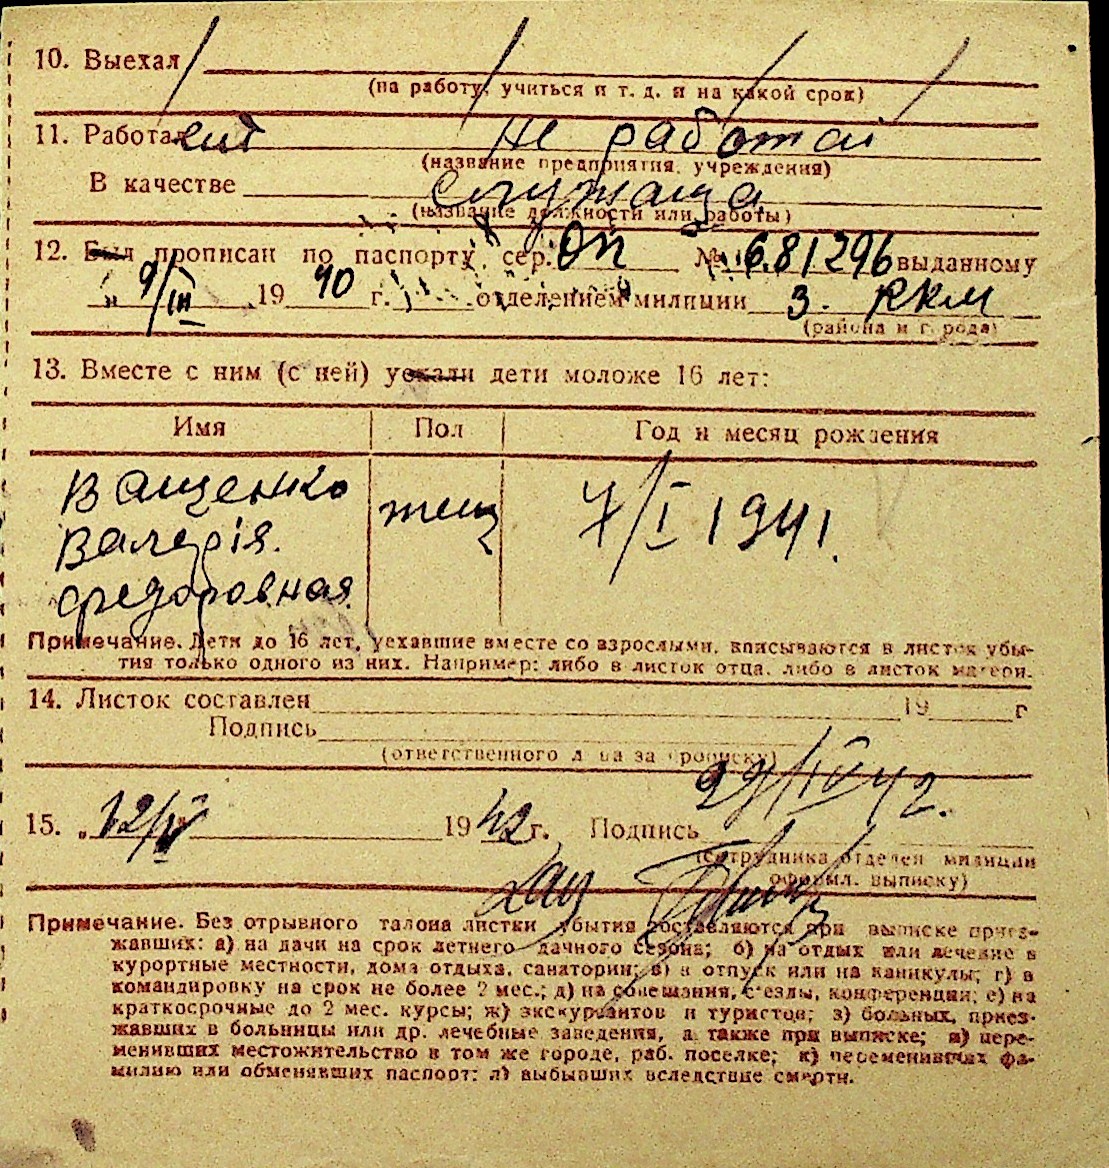 10. Выехал
(на работу, учиться и т. д. и на какой срок)
11. Работает не работай
(название предприятия, учреждения)
В качестве служаща
(название должности или работы)
12. Был прописан по паспорту сер. ОП № 681296 выданному
" 9/III 1940 г. отделением милиции 3. РКМ
(района и города)
13. Вместе с ним (с ней) уехали дети моложе 16 лет:
Имя Пол Год и месяц рождения
Ващенко жен 7/I 1941.
Валерія.
Федоровная.
Примечание. Дети до 16 лет, уехавшие вместе со взрослыми, вписываются в листок убы-
тия только одного из них. Например: либо в листок отца, либо в листок матери.
14. Листок составлен 19 г
Подпись
(ответственного лица за прописку)
29/IV 42.
15. „12/V" 1942 г. Подпись
(сотрудника отделен милиции
оформл. выписку)
Примечание. Без отрывного талона листки убытия составляются при выписке приез-
жавших: а) на дачи на срок летнего дачного сезона; б) на отдых или лечение в
курортные местности, дома отдыха, санатории; в) в отпуск или на каникулы; г) в
командировку на срок не более 2 мес.; д) на совещания, с'езды, конференции; е) на
краткосрочные до 2 мес. курсы; ж) экскурсантов и туристов; з) больных, приез-
жавших в больницы или др. лечебные заведения, а также при выписке; и) пере-
менивших местожительство в том же городе, раб. поселке; к) переменивших фа-
милию или обменявших паспорт; л) выбывших вследствие смерти.